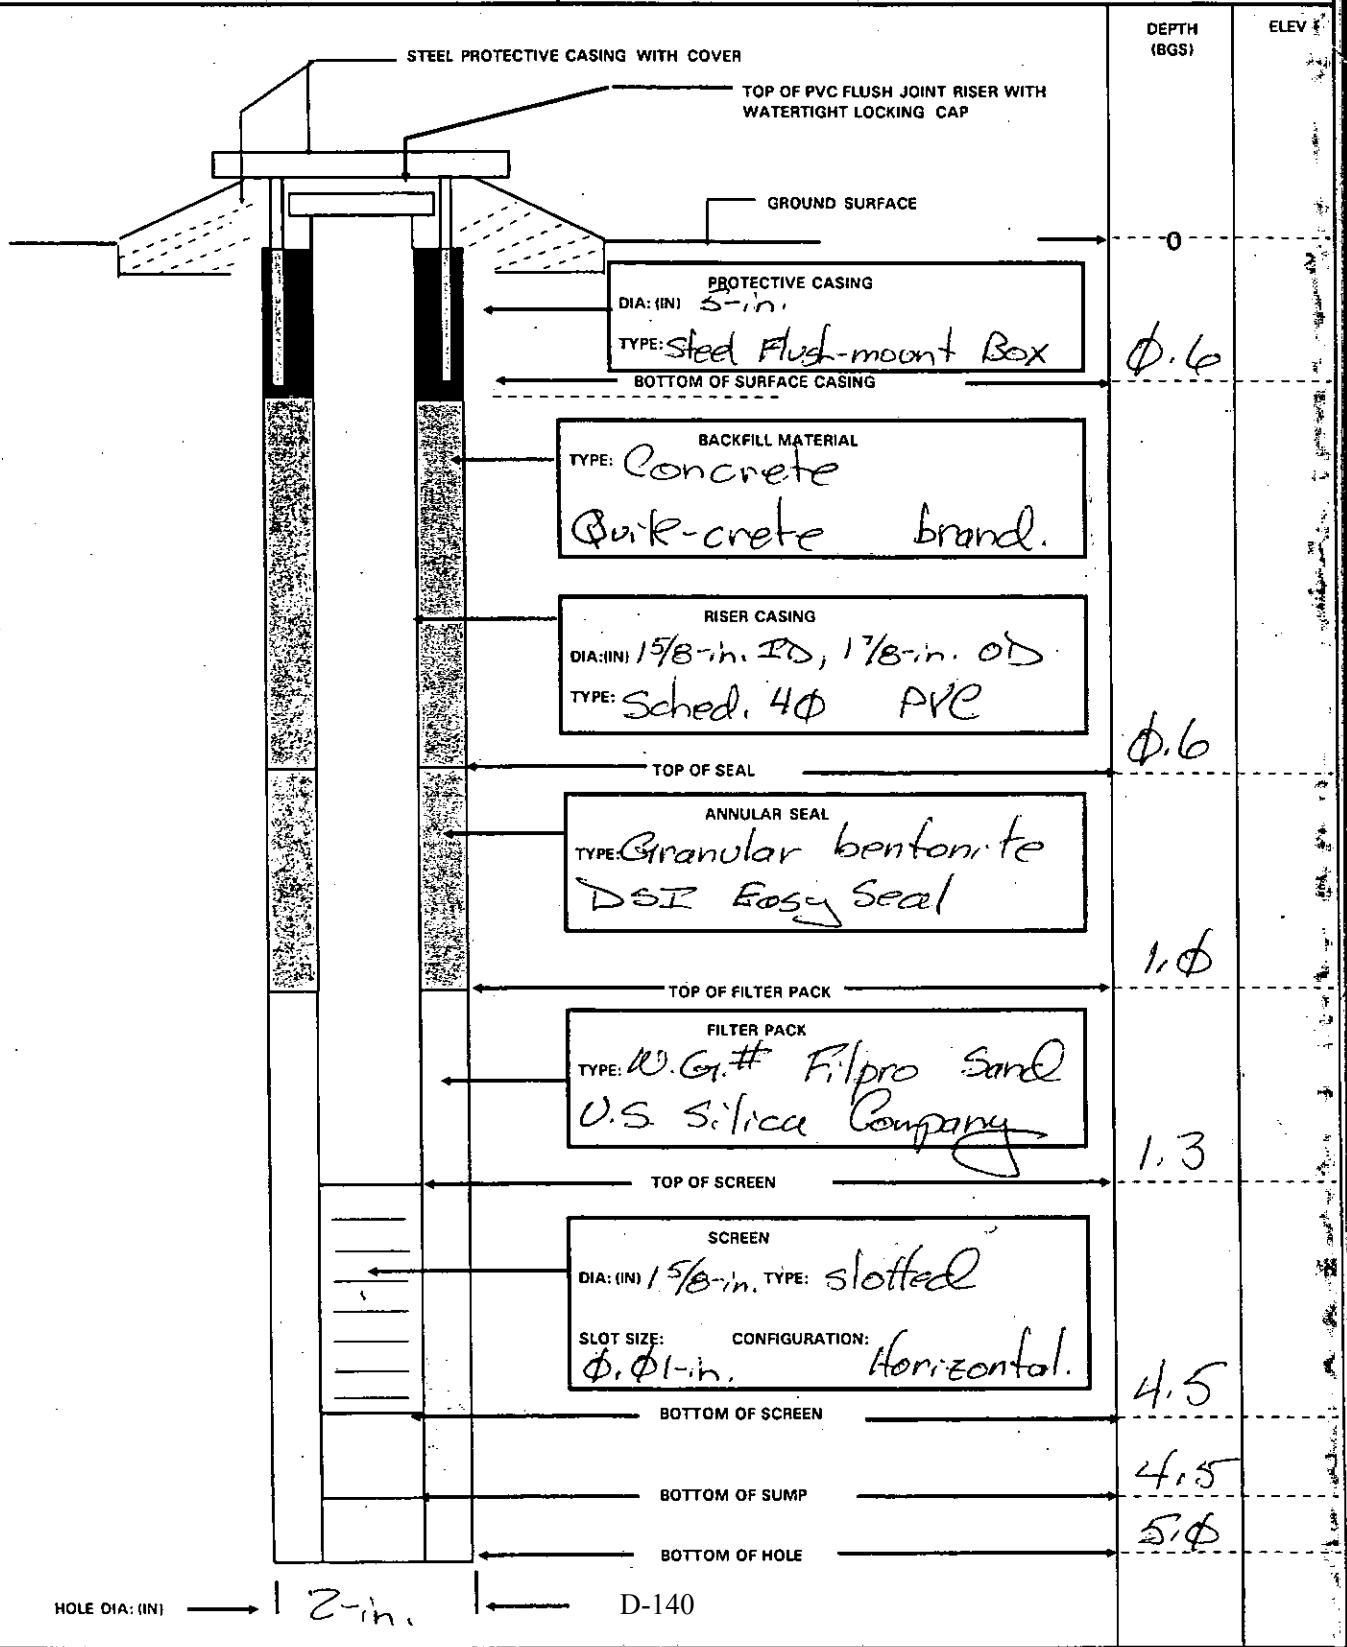 DEPTH
(BGS)
ELEV
STEEL PROTECTIVE CASING WITH COVER
TOP OF PVC FLUSH JOINT RISER WITH
WATERTIGHT LOCKING CAP
GROUND SURFACE
0
PROTECTIVE CASING
DIA: (IN) 5-in.
TYPE: Steel Flush-mount Box
0.6
BOTTOM OF SURFACE CASING
BACKFILL MATERIAL
TYPE: Concrete
Quik-crete brand.
RISER CASING
DIA:(IN) 1 5/8-in. ID, 1 7/8-in. OD
TYPE: Sched. 40 PVC
0.6
TOP OF SEAL
ANNULAR SEAL
TYPE: Granular bentonite
DSI Easy Seal
1.0
TOP OF FILTER PACK
FILTER PACK
TYPE: W.G.# Filpro Sand
U.S. Silica Company
1.3
TOP OF SCREEN
SCREEN
DIA: (IN) 1 5/8-in. TYPE: slotted
SLOT SIZE: CONFIGURATION:
0.01-in. Horizontal.
4.5
BOTTOM OF SCREEN
4.5
BOTTOM OF SUMP
5.0
BOTTOM OF HOLE
HOLE DIA: (IN) 2-in.
D-140